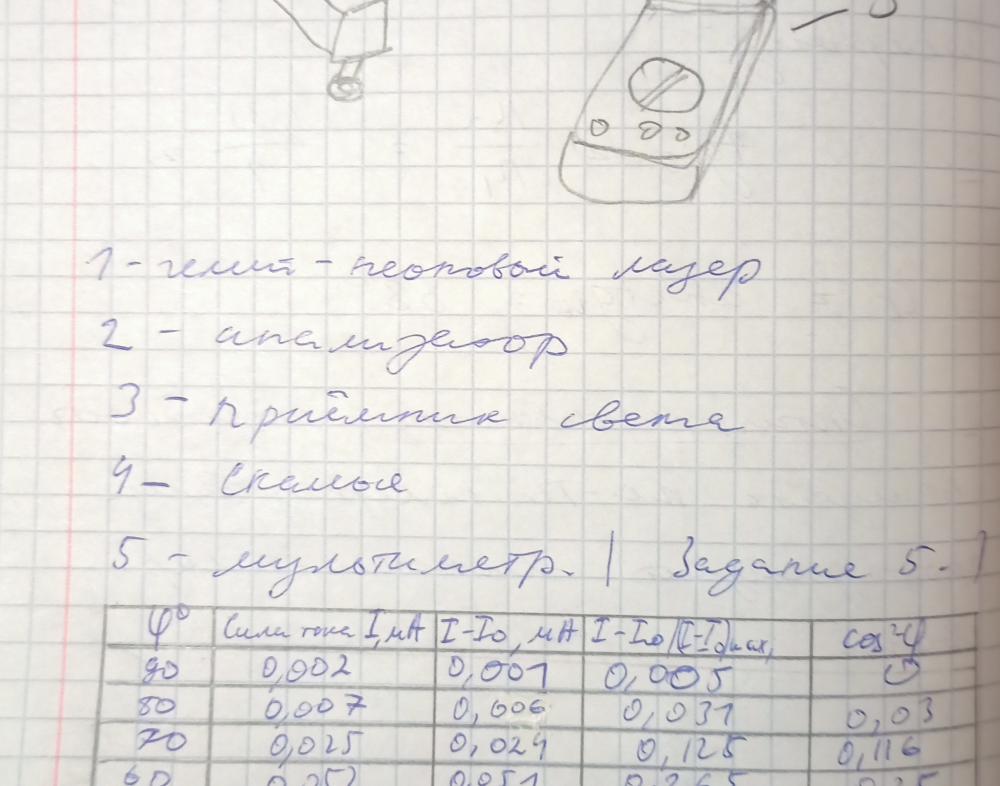 5
1 - гелий - неоновый лазер
2 - анализатор
3 - приёмник света
4 - Скамья
5 - мультиметр. | Задание 5. |
φ° Сила тока I, мА I-I₀, мА I-I₀/(I-I₀)max, cos²φ
90 0,002 0,001 0,005 0
80 0,007 0,006 0,031 0,03
70 0,025 0,024 0,125 0,116
60 0,052 0,051 0,265 0,25